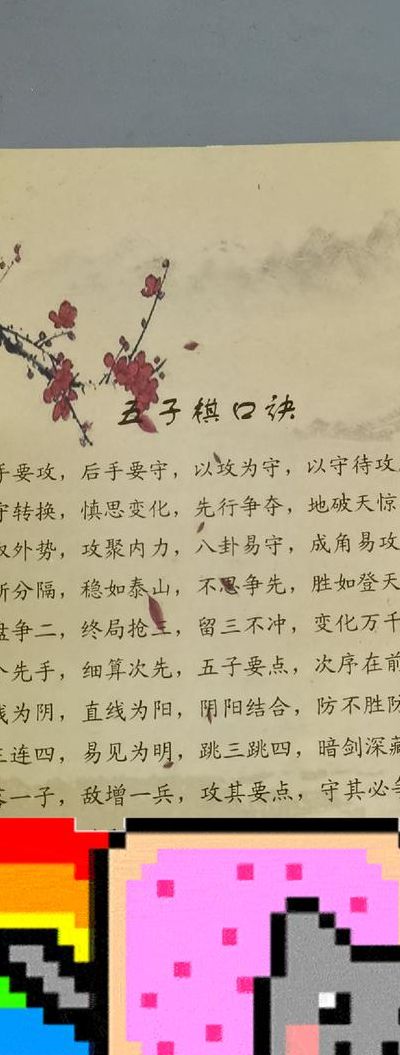 五子棋口诀
手要攻，后手要守，以攻为守，以守待攻
守转换，慎思变化，先行争夺，地破天惊
取外势，攻聚内力，八卦易守，成角易攻
断分隔，稳如泰山，不思争先，胜如登天
盘争二，终局抢三，留三不冲，变化万千
个先手，细算次先，五子要点，次序在前
线为阴，直线为阳，阴阳结合，防不胜防
三连四，易见为明，跳三跳四，暗剑深藏
落一子，敌增一兵，攻其要点，守其必争